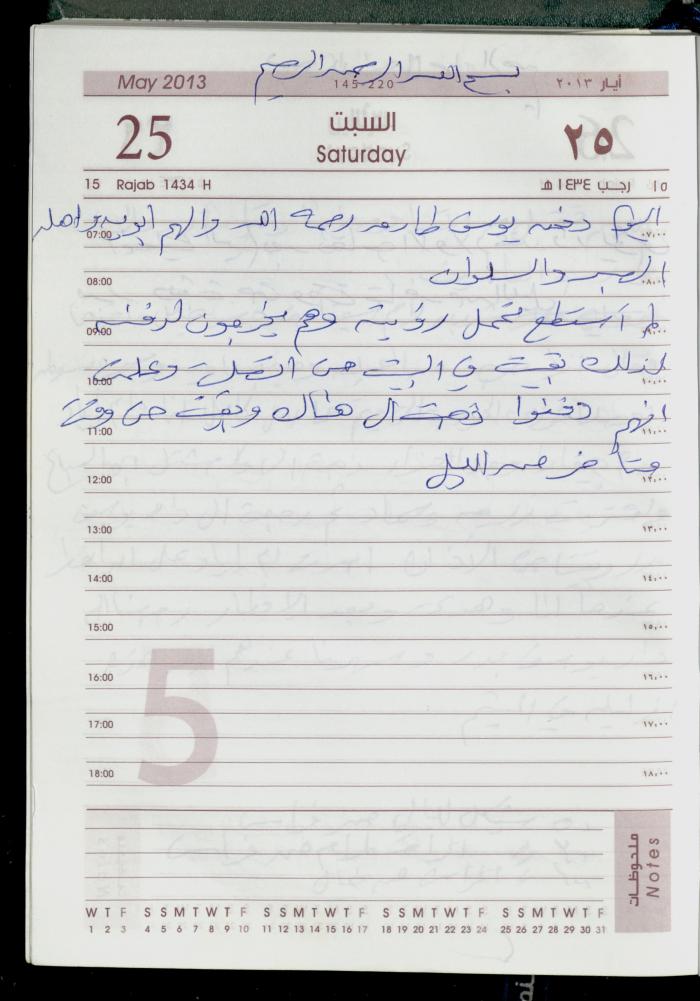 بسم الله الرحمن الرحيم
May 2013
145-220
أيار ٢٠١٣
25
السبت
Saturday
٢٥
15 Rajab 1434 H
١٥ رجب ١٤٣٤ هـ
اليوم دفنه يوسف طارمه رحمه الله والهم ابويه واهله
07:00 ٠٧,٠٠
الصبر والسلوان
08:00 ٠٨,٠٠
لم استطع تحمل رؤيته وهم يخرجون لدفنه
09:00 ٠٩,٠٠
لذلك بقيت في البيت حتى اتصلت وعلمت
10:00 ١٠,٠٠
انهم دفنوا ذهبت الى هناك وبقيت حتى وقت
11:00 ١١,٠٠
متأخر من الليل
12:00 ١٢,٠٠
13:00 ١٣,٠٠
14:00 ١٤,٠٠
15:00 ١٥,٠٠
5
16:00 ١٦,٠٠
17:00 ١٧,٠٠
18:00 ١٨,٠٠
ملحوظات
Notes
W T F S S M T W T F S S M T W T F S S M T W T F S S M T W T F
1 2 3 4 5 6 7 8 9 10 11 12 13 14 15 16 17 18 19 20 21 22 23 24 25 26 27 28 29 30 31